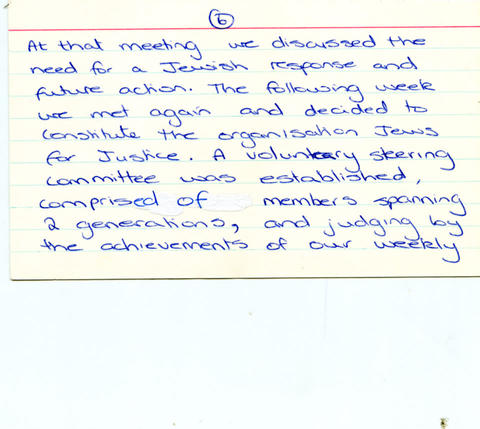 6
At that meeting we discussed the
need for a Jewish response and
future action. The following week
we met again and decided to
constitute the organisation Jews
for Justice. A voluntary steering
committee was established,
comprised of members spanning
2 generations, and judging by
the achievements of our weekly